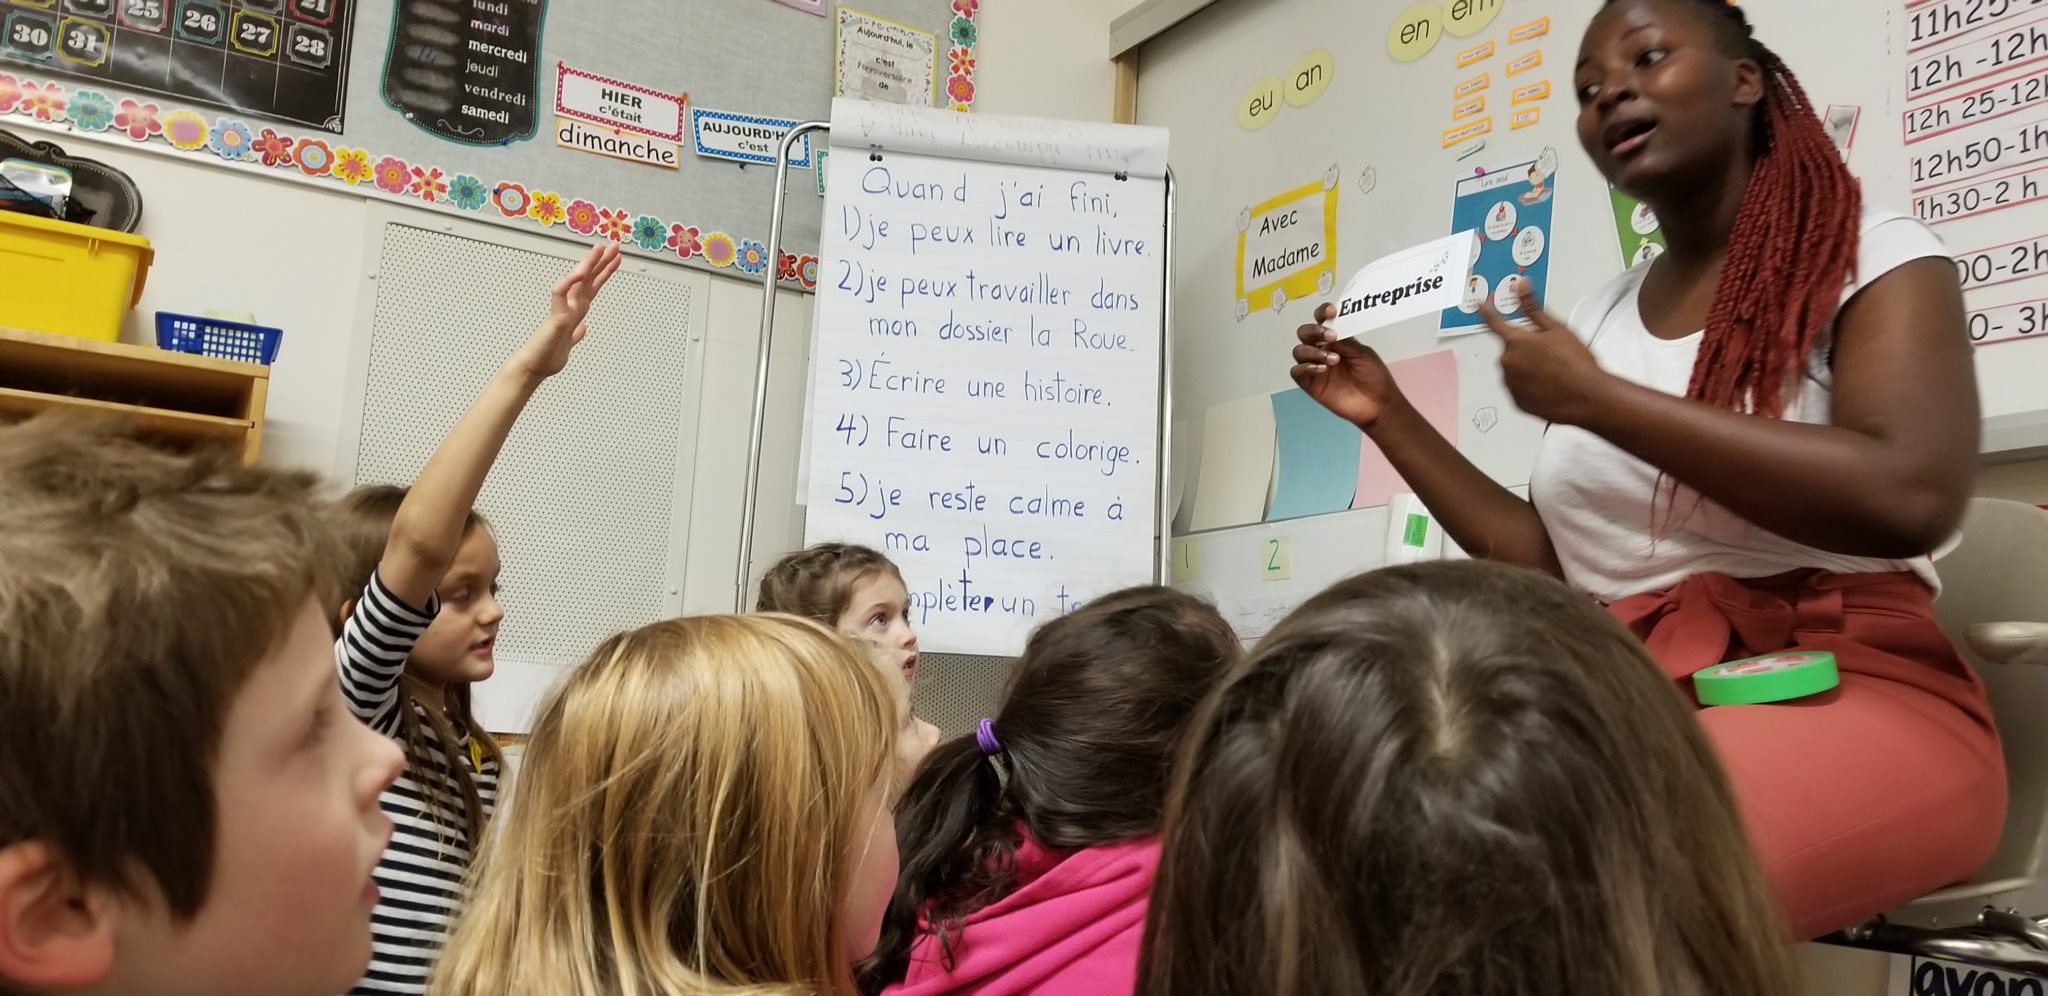 21
25
26
27
28
30
31
lundi
mardi
mercredi
jeudi
vendredi
samedi
HIER
c'était
dimanche
AUJOURD'H
c'est
Aujourd'hui, le
c'est
l'anniversaire
de
Quand j'ai fini,
1) je peux lire un livre.
2) je peux travailler dans
mon dossier la Roue.
3) Écrire une histoire.
4) Faire un colorige.
5) je reste calme à
ma place.
mplèter un tr
eu
an
en
em
Avec
Madame
Lire seul
Entreprise
1
2
11h25-1
12h -12h
12h 25-12h
12h50-1h
1h30-2 h
00-2h
0- 3h
avan